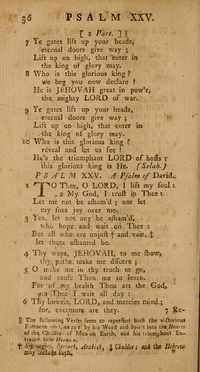 36 PSALM XXV.
[ 2 Part. ]
7 Ye gates lift up your heads,
eternal doors give way ;
Lift up on high, that enter in
the king of glory may.
8 Who is this glorious king ?
we beg you now declare !
He is JEHOVAH great in pow'r,
the mighty LORD of war.
9 Ye gates lift up your heads,
eternal doors give way ;
Lift up on high, that enter in
the king of glory may.
10 Who is this glorious king ?
reveal and let us see !
He's the triumphant LORD of hosts :
this glorious king is He. [ Selah. ]
PSALM XXV. A Psalm of David.
TO Thee, O LORD, I lift my soul :
2 My God, I trust in Thee :
Let me not be asham'd ; nor let
my foes joy over me.
3 Yea, let not any be asham'd,
who hope and wait on Thee :
But all who are unjust † and vain, ‡
let these ashamed be.
4 Thy ways, JEHOVAH, to me show,
thy paths make me discern ;
5 O make me in thy truth to go,
and cause Thou me to learn.
For of my health Thou art the God,
on Thee I wait all day :
6 Thy love, LORD, and mercies mind ;
for, evermore are they. 7 Re-
The following Verses seem to represent both the victorious
by his Word and Spirit into the Hearts
of the Children of Earth, and his triumphant
Syriac, Arabick, ‡ Chaldee : and the Hebrew
may include both.